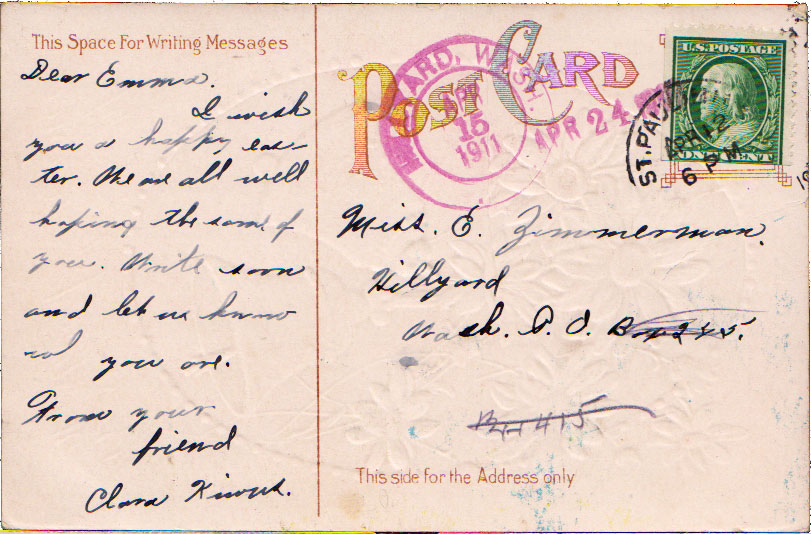 This Space For Writing Messages
Dear Emma.
I wish
you a happy eas-
ter. We are all well
hoping the same of
you. Write soon
and let us know
you are.
From your
friend
Clara
POST CARD
U.S. POSTAGE
ONE CENT
ST. PAUL
APR 12
6 PM
WASH.
APR
15
1911
APR 24
Miss. E. Zimmerman.
Hillyard
Wash. P. O. Box 245.
415
This side for the Address only